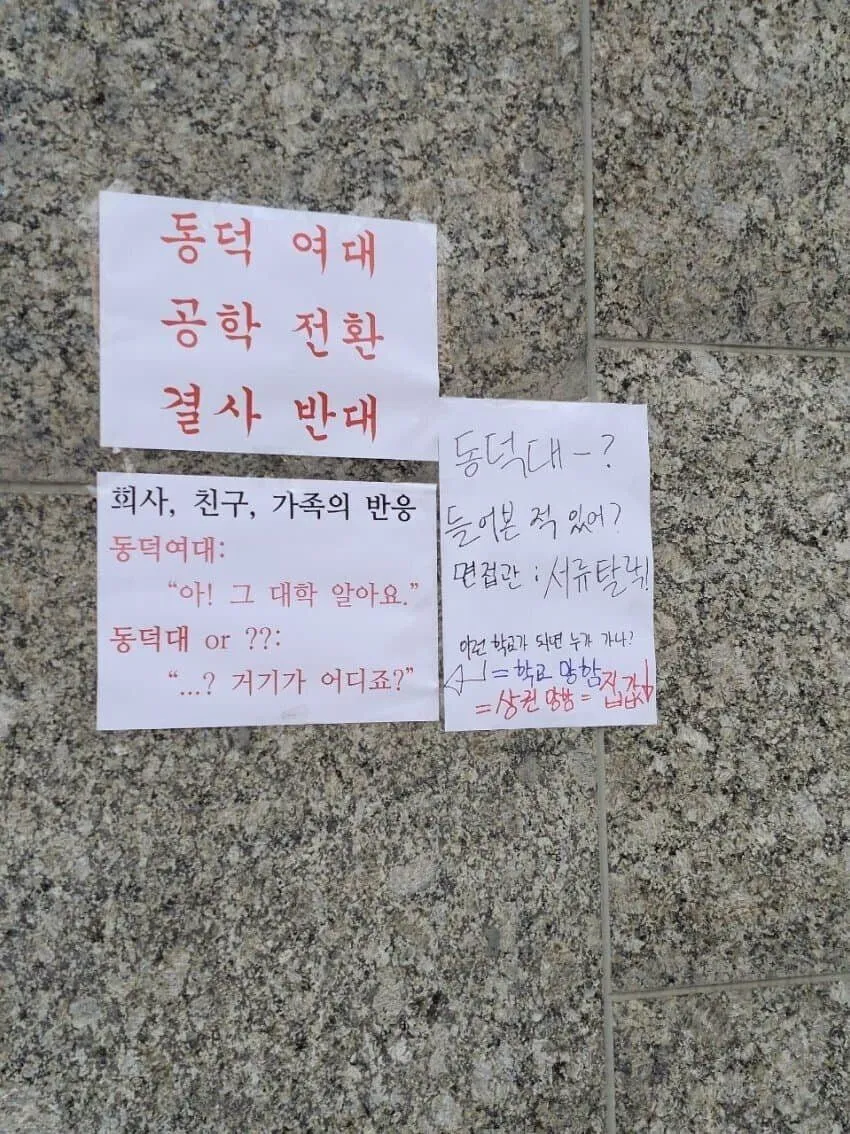 동덕 여대
공학 전환
결사 반대
회사, 친구, 가족의 반응
동덕여대:
“아! 그 대학 알아요.”
동덕대 or ??:
“...? 거기가 어디죠?”
동덕대 - ?
들어본 적 있어?
면접관 : 서류탈락!
이런 학교가 되면 누가 가냐?
= 학교 망함
= 상권 망함 = 집값↓